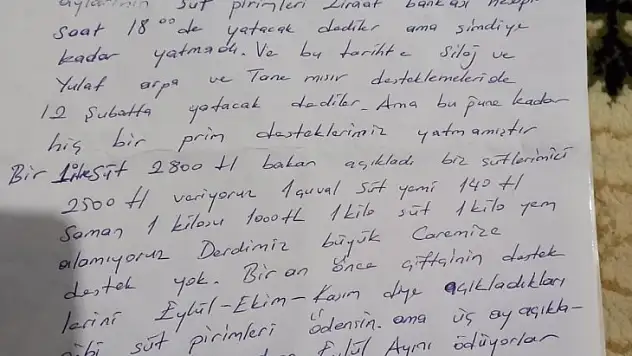 aylarinin süt pirimleri Ziraat bankası
saat 18⁰⁰de yatacak dediler ama şimdiye
kadar yatmadı. Ve bu tarihte Silaj ve
Yulaf arpa ve Tane mısır desteklemeleride
12 Şubatta yatacak dediler. Ama bu güne kadar
hiç bir prim desteklerimiz yatmamıştır
Bir litre Süt 2800 tl bakan açıkladı biz sütlerimizi
2500 tl veriyoruz 1 çuval süt yemi 140 tl
Saman 1 kilosu 1000 tL 1 kilo süt 1 kilo yem
alamıyoruz Derdimiz büyük Caremize
destek yok. Bir an önce çiftçinin destek
lerini Eylül-Ekim-Kasım diye açıkladıkları
gibi süt pirimleri ödensin. ama üç ay açıkla-
Eylül Ayını ödüyorlar